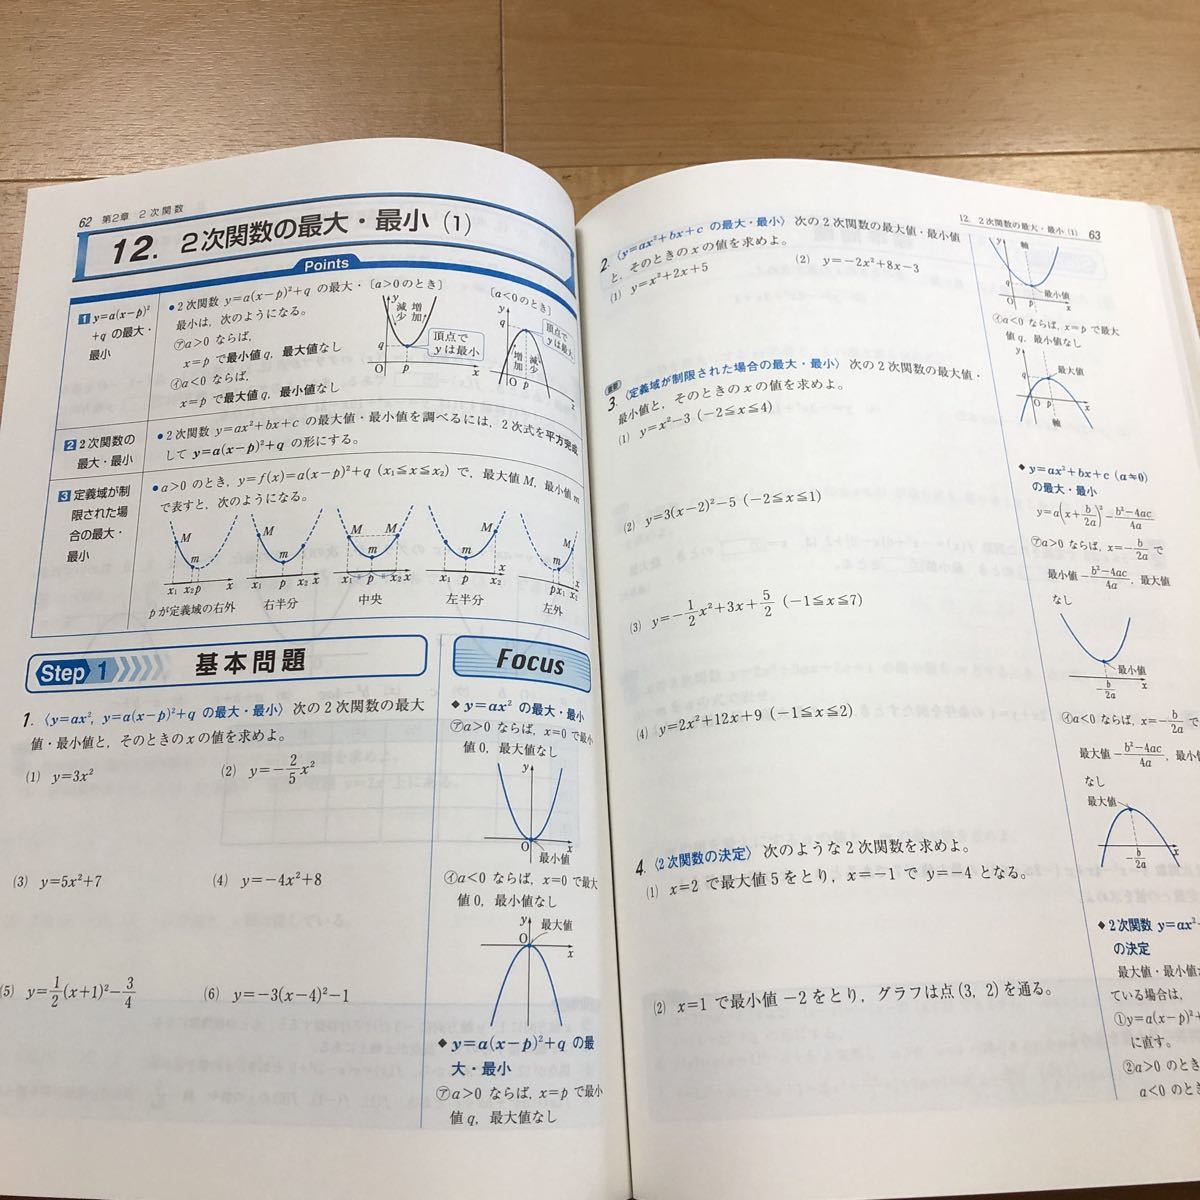 62 第2章 2次関数
12. 2次関数の最大・最小 (1)
Points
1 y=a(x−p)²
+q の最大・
最小
●2次関数 y=a(x−p)²+q の最大・
最小は,次のようになる。
㋐a>0 ならば,
x=p で最小値 q, 最大値なし
㋑a<0 ならば,
x=p で最大値 q, 最小値なし
〔a>0のとき〕
y 減少 増加
頂点で
yは最小
q
O p x
〔a<0のとき〕
y
q
頂点で
yは最大
増加 減少
O p x
2 2次関数の
最大・最小
●2次関数 y=ax²+bx+c の最大値・最小値を調べるには,2次式を平方完成
して y=a(x−p)²+q の形にする。
3 定義域が制
限された場
合の最大・
最小
●a>0 のとき,y=f(x)=a(x−p)²+q (x₁≦x≦x₂) で,最大値 M, 最小値 m
で表すと,次のようになる。
M m x₁ x₂ p x
M m x₁ p x₂ x
M M m x₁ p x₂ x
M m x₁ p x₂ x
M m p x₁ x₂ x
pが定義域の右外 右半分 中央 左半分 左外
Step 1 基本問題
1. 〈y=ax², y=a(x−p)²+q の最大・最小〉 次の2次関数の最大
値・最小値と,そのときのxの値を求めよ。
(1) y=3x² (2) y=−2/5x²
(3) y=5x²+7 (4) y=−4x²+8
(5) y=1/2(x+1)²−3/4 (6) y=−3(x−4)²−1
Focus
◆y=ax² の最大・最小
㋐a>0 ならば,x=0 で最小
値 0, 最大値なし
y
O x
最小値
㋑a<0 ならば,x=0 で最大
値 0, 最小値なし
y 最大値
O x
◆y=a(x−p)²+q の最
大・最小
㋐a>0 ならば,x=p で最小
値 q, 最大値なし
12. 2次関数の最大・最小 (1) 63
2. 〈y=ax²+bx+c の最大・最小〉 次の2次関数の最大値・最小値
と,そのときのxの値を求めよ。
(1) y=x²+2x+5 (2) y=−2x²+8x−3
重要
3. 〈定義域が制限された場合の最大・最小〉 次の2次関数の最大値・
最小値と,そのときのxの値を求めよ。
(1) y=x²−3 (−2≦x≦4)
(2) y=3(x−2)²−5 (−2≦x≦1)
(3) y=−1/2x²+3x+5/2 (−1≦x≦7)
(4) y=2x²+12x+9 (−1≦x≦2)
4. 〈2次関数の決定〉 次のような2次関数を求めよ。
(1) x=2 で最大値5をとり,x=−1 で y=−4 となる。
(2) x=1 で最小値 −2 をとり,グラフは点(3, 2)を通る。
y 軸
q
最小値
O p x
㋑a<0 ならば,x=p で最大
値 q, 最小値なし
y
最大値
q
O p x
軸
◆y=ax²+bx+c (a≠0)
の最大・最小
y=a(x+b/2a)²−b²−4ac/4a
㋐a>0 ならば,x=−b/2a で
最小値 −b²−4ac/4a, 最大値
なし
最小値
−b/2a x
㋑a<0 ならば,x=−b/2a で
最大値 −b²−4ac/4a, 最小値
なし
最大値
−b/2a x
◆2次関数 y=ax²
の決定
最大値・最小値
ている場合は,
①y=a(x−p)²+
に直す。
②a>0 のとき
a<0 のとき